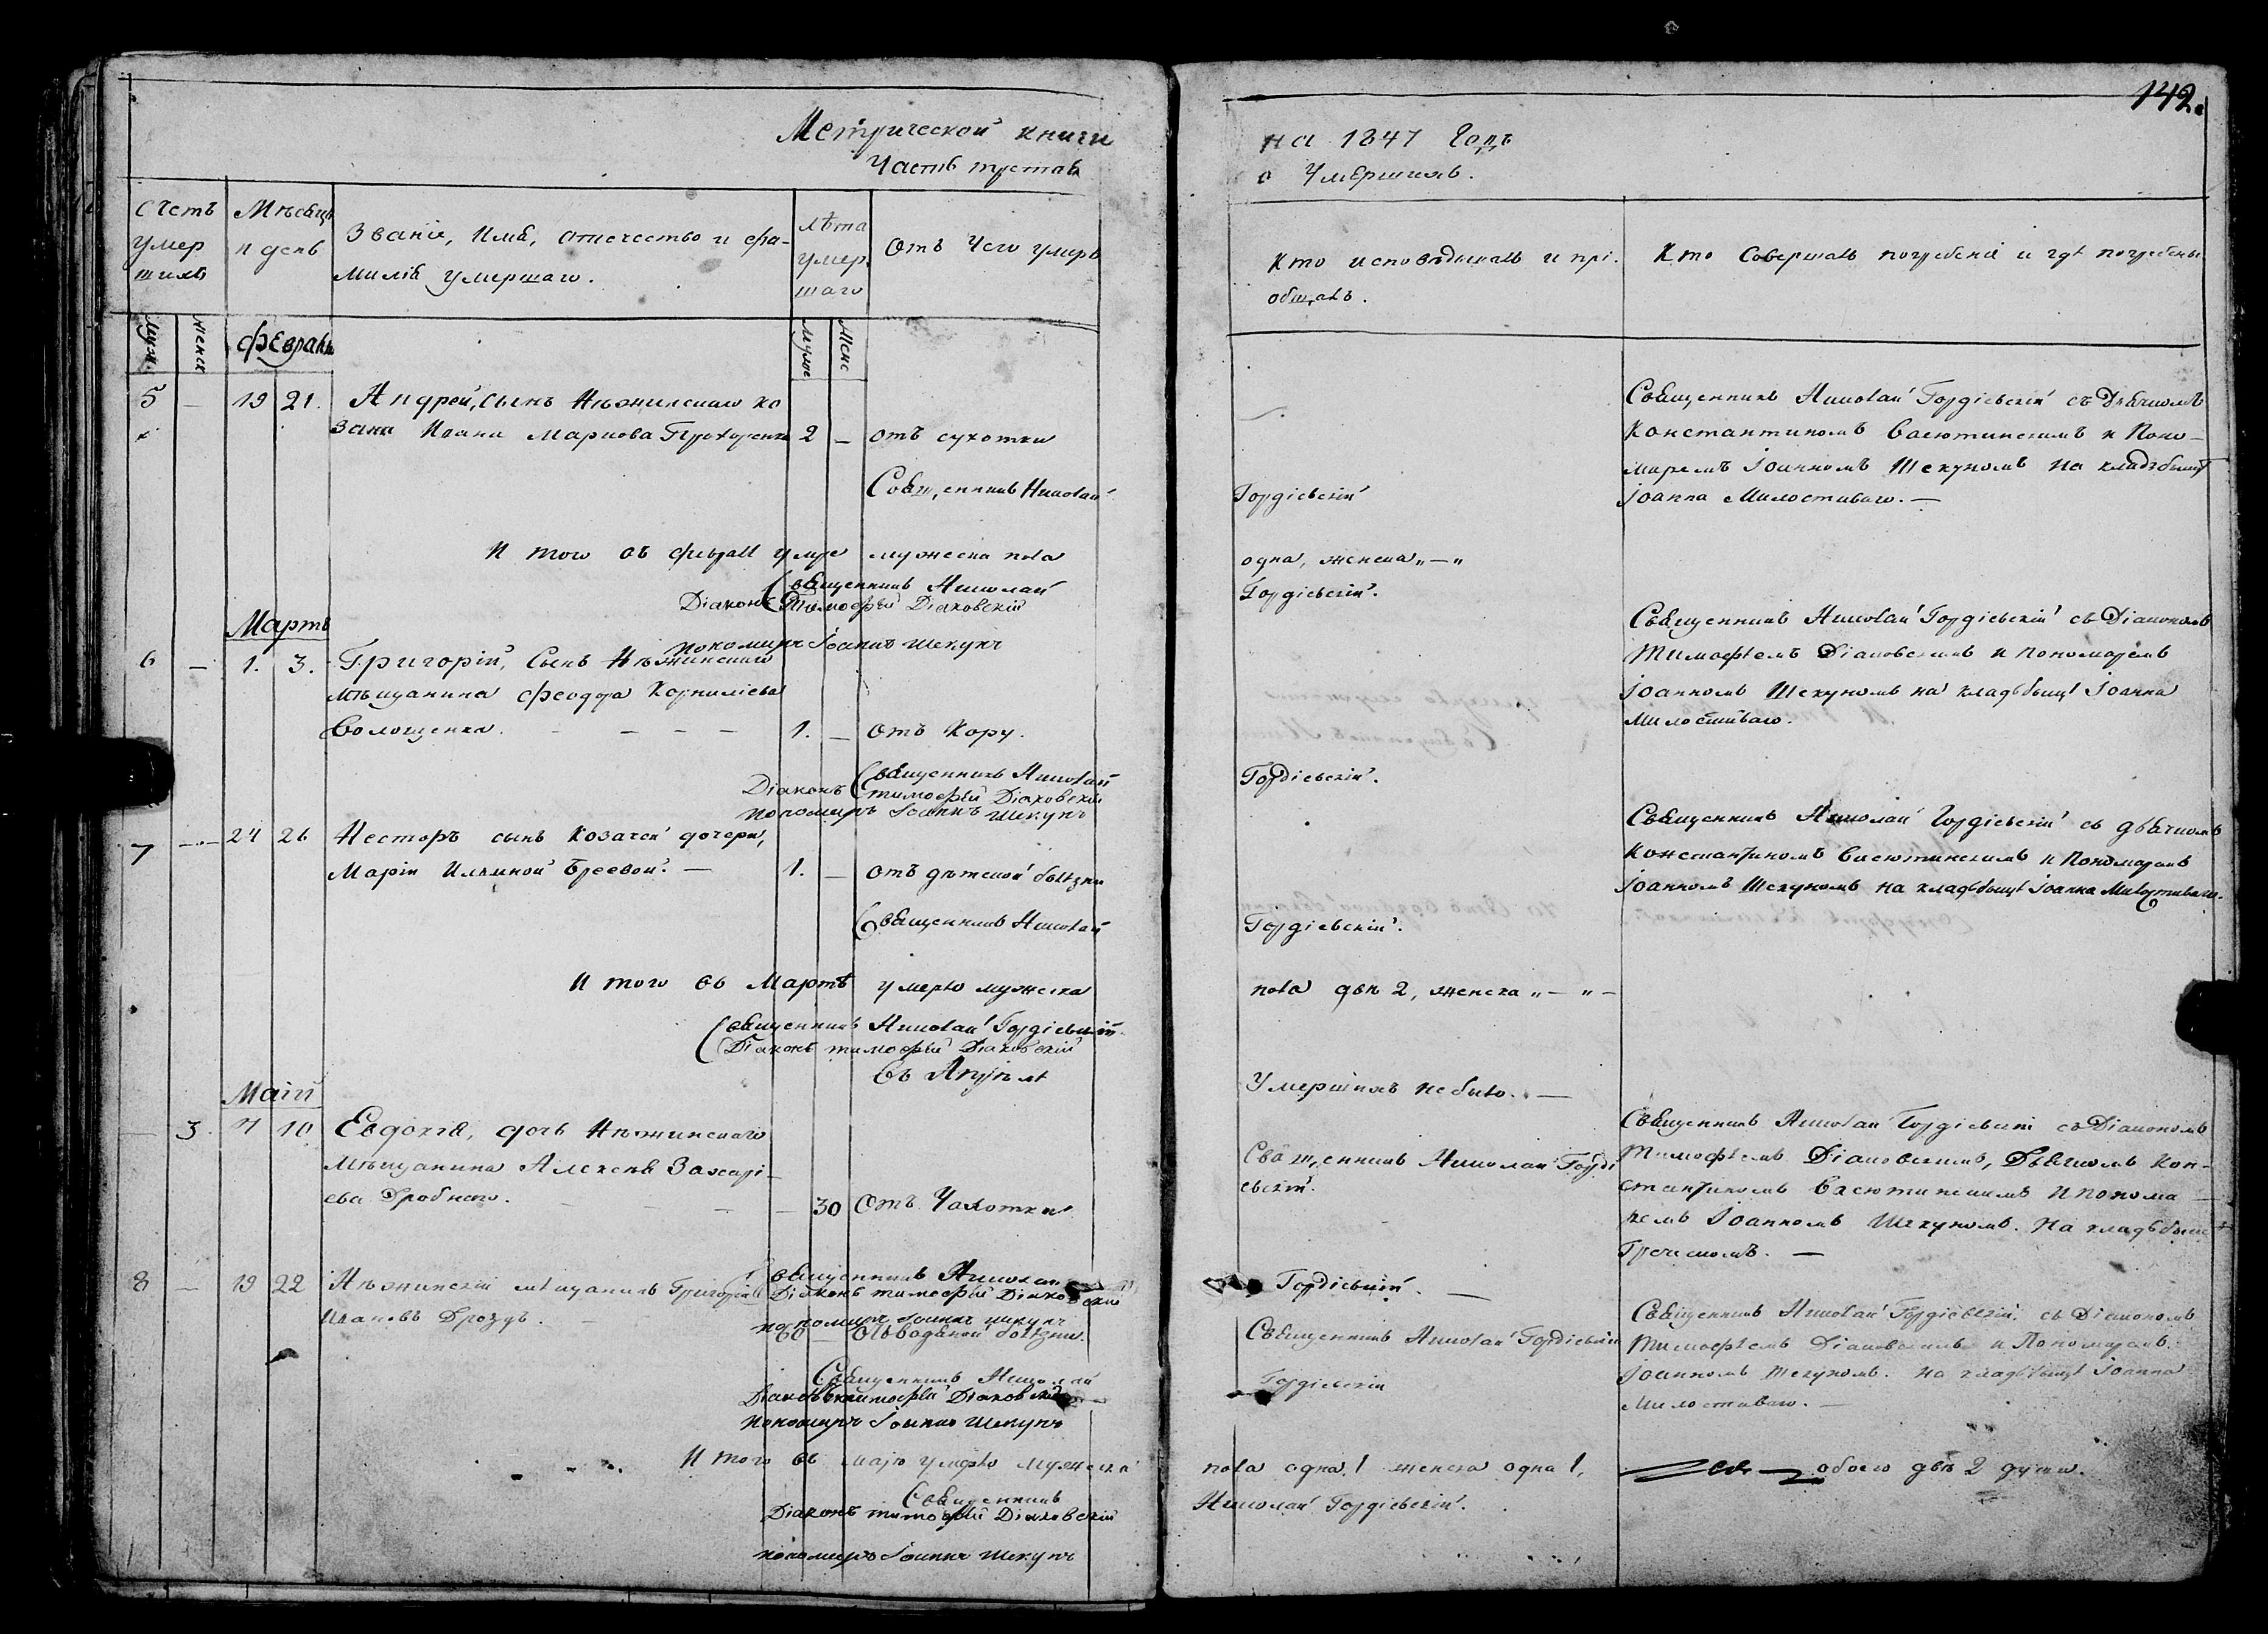 142.
Метрической книги
Часть третья
на 1847 Годъ
о Умершихъ.
Счетъ умер шихъ
Мѣсяцъ и день
Званіе, Имя, отчество и фа-
милія умершаго.
лѣта умер шаго
Отъ чего умеръ
Кто исповѣдывалъ и прі-
общалъ.
Кто Совершалъ погребеніе и гдѣ погребены
Муж.
Женск
Февраль
5 — 19 21. Андрей, сынъ Нѣжинскаго ко
зака Ивана Маркова Прохоренка 2 — отъ сухотки
Священникъ Николай Гордіевскій съ Дьячкомъ
Константиномъ Васютинскимъ и Поно-
маремъ Іоанномъ Шекуномъ на кладбищѣ
Іоанна Милостиваго. —
Священникъ Николай Гордіевскій
И того въ февралѣ умре мужеска пола одна, женска „—„
Священникъ Николай Гордіевскій.
Діаконъ Тимофѣй Діаковскій
пономарь Іоаннъ Шекунъ
Мартъ
6 — 1. 3. Григорій, Сынъ Нѣжинскаго
мѣщанина Феодора Корнилієва
Волощенка. — — — 1. — отъ Кору.
Священникъ Николай Гордіевскій съ Діакономъ
Тимофѣемъ Діаковскимъ и пономаремъ
Іоанномъ Шекуномъ на кладьбищѣ Іоанна
Милостиваго.
Священникъ Николай Гордіевскій.
Діаконъ Тимофѣй Діаковскій
пономарь Іоаннъ Шекунъ
7 — 24 26 Несторъ сынъ козачей дочери,
Маріи Ильиной Бреевой. — 1. — отъ дѣтской болѣзни
Священникъ Николай Гордіевскій съ дьячкомъ
Константиномъ Васютинскимъ и Пономаремъ
Іоанномъ Шекуномъ на кладьбищѣ Іоанна Милостиваго.
Священникъ Николай Гордіевскій.
И того въ Мартѣ умерло мужеска пола двѣ 2, женска „—„—
Священникъ Николай Гордіевскій
Діаконъ тимофѣй Діаковскій
Въ Апрѣлѣ Умершихъ не было. —
Маій
— 3. 7 10 Евдокія, дочь Нѣжинскаго
мѣщанина Алексѣя Захарі-
ева Дробнаго. — — — 30 Отъ Чахотки
Священникъ Николай Горді
евскій.
Священникъ Николай Гордіевскій съ Діакономъ
Тимофѣемъ Діаковскимъ, Дьячкомъ Кон-
стантиномъ Васютинскимъ и понома
ремъ Іоанномъ Шекуномъ. На кладьбищѣ
Греческомъ. —
Священникъ Николай Гордіевскій. —
Діаконъ тимофѣй Діаковскій
пономарь Іоаннъ шекунъ
8 — 19 22 Нѣжинскій мѣщанинъ Григорій
Ивановъ Дроздъ. — 60 — Отъ водяной болѣзни.
Священникъ Николай Гордіевскій
Священникъ Николай Гордіевскій. съ Діакономъ
Тимофѣемъ Діаковскимъ и Пономаремъ
Іоанномъ Шекуномъ. На кладьбищѣ Іоанна
Милостиваго. —
Священникъ Николай Гордіевскій
Діаконъ тимофѣй Діаковскій
пономарь Іоаннъ Шекунъ
И того въ маію умерло мужеска пола одна 1 женска одна 1, обоего двѣ 2 души.
Священникъ Николай Гордіевскій.
Діаконъ тимофѣй Діаковскій
пономарь Іоаннъ Шекунъ